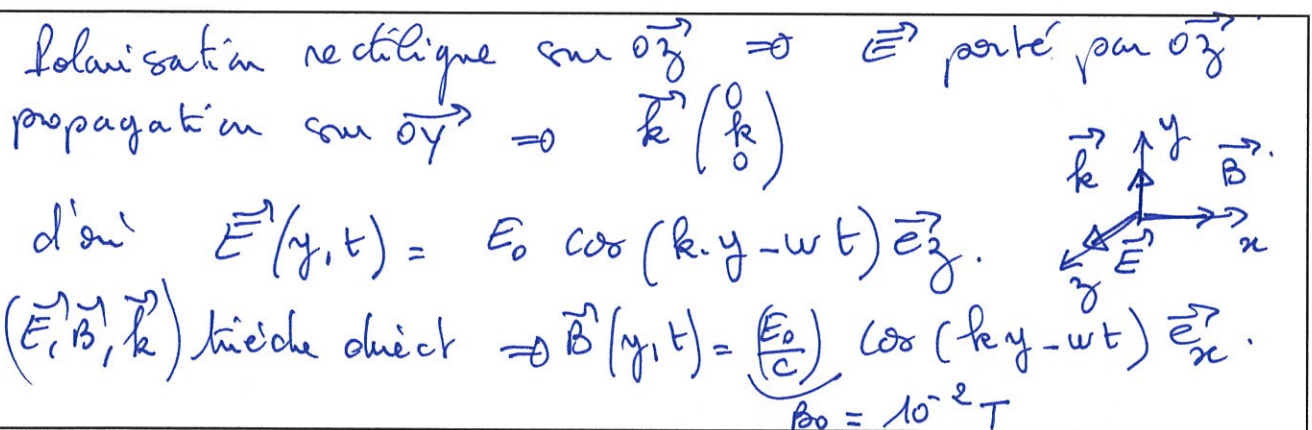 Polarisation rectiligne sur \overrightarrow{Oz} ⇒ \vec{E} porté par \overrightarrow{Oz}
propagation sur \overrightarrow{OY} ⇒ \vec{k} (0 k 0)
\vec{k} y \vec{B}.
d'où \vec{E}(y,t) = E₀ cos(k.y-wt) \vec{e_z}.
z \vec{E} x
(\vec{E}, \vec{B}, \vec{k}) trièdre direct ⇒ \vec{B}(y,t) = (E₀/c) cos(ky-wt) \vec{e_x}.
B₀ = 10⁻² T